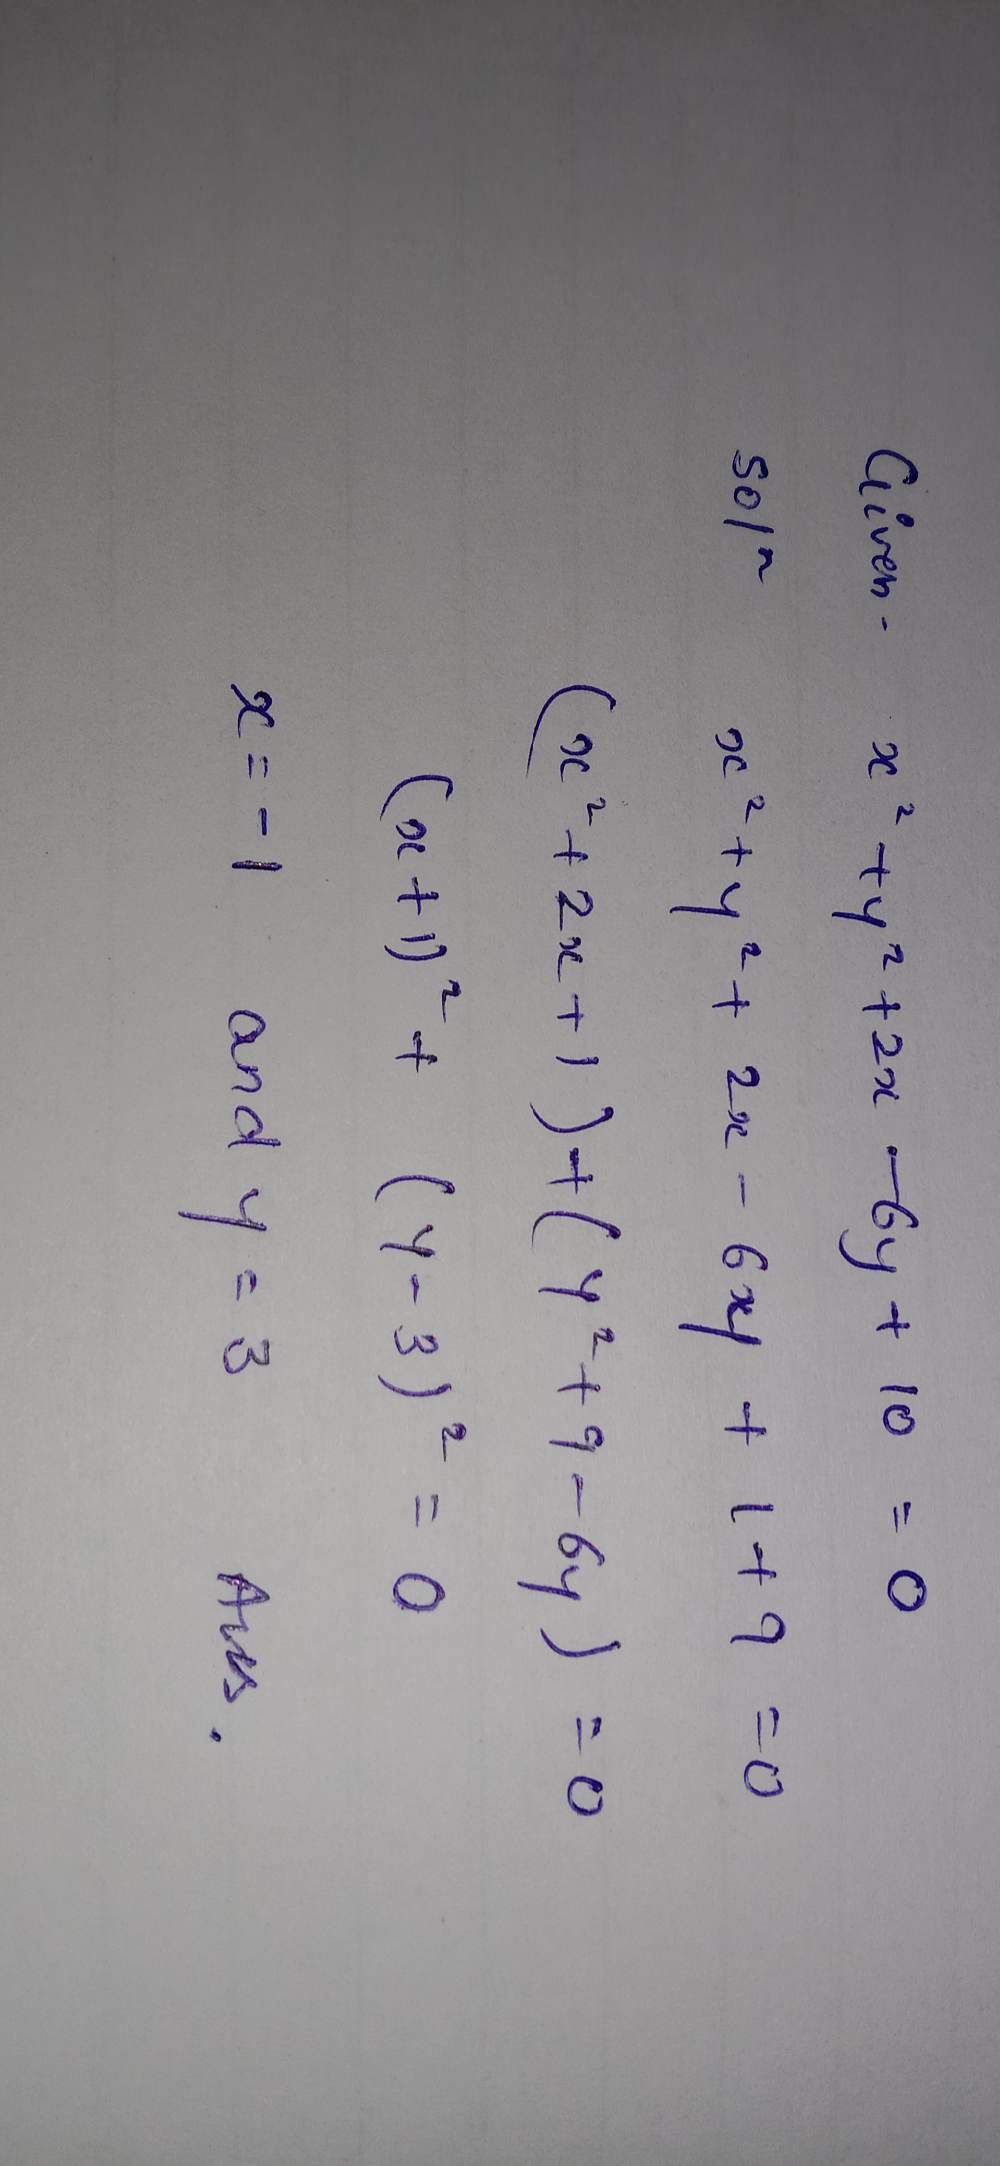 Given - x² + y² + 2x - 6y + 10 = 0
Solⁿ x² + y² + 2x - 6xy + 1 + 9 = 0
(x² + 2x + 1) + (y² + 9 - 6y) = 0
(x + 1)² + (y - 3)² = 0
x = -1 and y = 3 Ans.